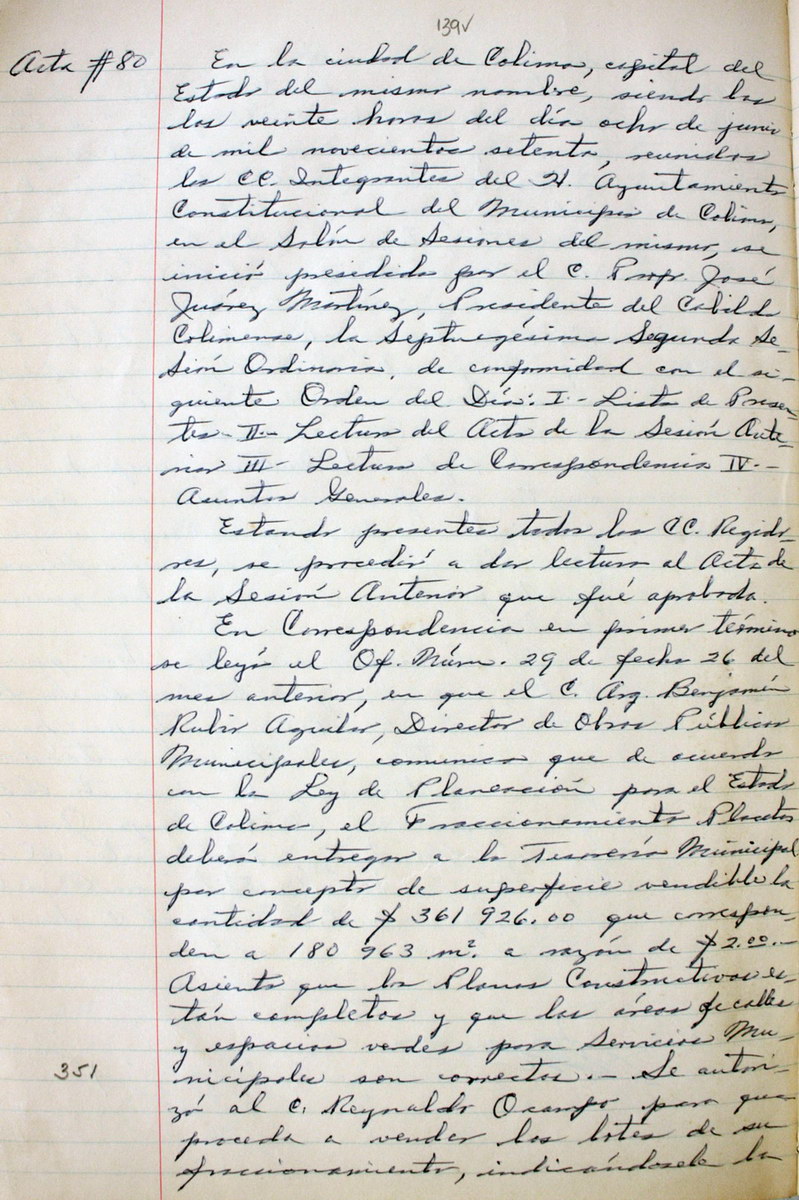 139v
Acta #80
En la ciudad de Colima, capital del
Estado del mismo nombre, siendo las
las veinte horas del día ocho de junio
de mil novecientos setenta, reunidos
los CC. Integrantes del H. Ayuntamiento
Constitucional del Municipio de Colima,
en el Salón de Sesiones del mismo, se
inició presidida por el C. Profr. José
Juárez Martínez, Presidente del Cabildo
Colimense, la Septuagésima Segunda Se-
sión Ordinaria, de conformidad con el si-
guiente Orden del Día: I - Lista de Presen-
tes - II - Lectura del Acta de la Sesión Ante-
rior III - Lectura de Correspondencia IV. -
Asuntos Generales.
Estando presentes todos los CC. Regido-
res, se procedió a dar lectura al Acta de
la Sesión Anterior que fué aprobada.
En Correspondencia en primer término
se leyó el Of. Núm. 29 de fecha 26 del
mes anterior, en que el C. Arq. Benjamín
Rubio Aguilar, Director de Obras Públicas
Municipales, comunica que de acuerdo
con la Ley de Planeación para el Estado
de Colima, el Fraccionamiento Placetas
deberá entregar a la Tesorería Municipal
por concepto de superficie vendible la
cantidad de $ 361 926.00 que correspon-
den a 180 963 m². a razón de $2.00.-
Asienta que los Planos Constructivos es-
tán completos y que las áreas de calles
y espacios verdes para Servicios Mu-
nicipales son correctos. - Se autori-
351
zó al C. Reynaldo Ocampo para que
proceda a vender los lotes de su
fraccionamiento, indicándosele la